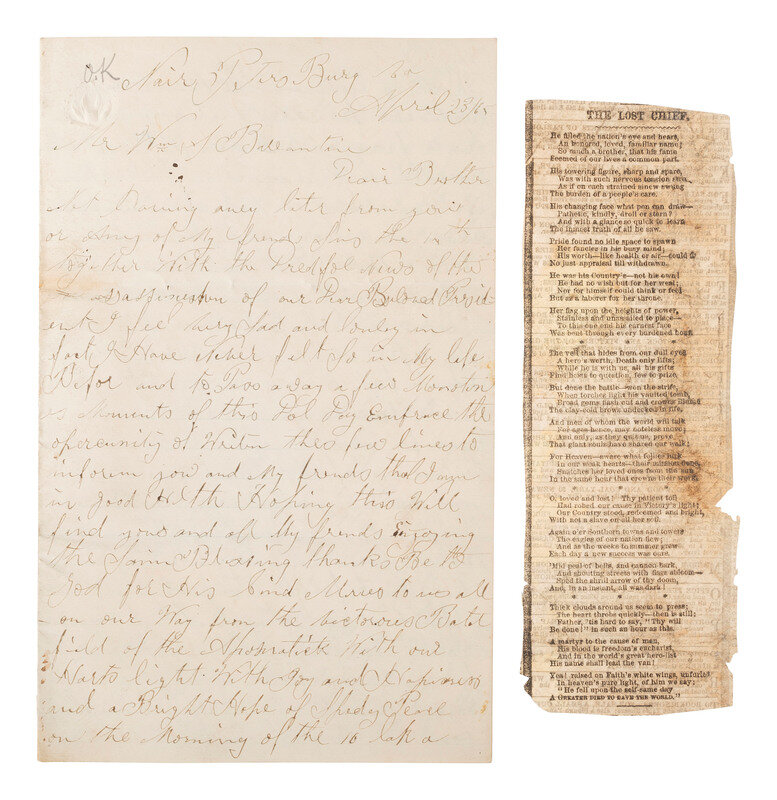 O.K
Nair Peters Burg va
April 23/65
Mr Wm S Ballantine
Dear Brother
Not having aney leter from you
or aney of My frends sins the 10th
togather With the Dredful News of the
of our Dear Beloved Presid
ent I feel very Sad and loney in
fact I Have Never felt so in My life
Befor and to Pass away a few Monoton
s Moments of this Dol Day Embrace the
opercunity of Writen the few lines to
inform you and My frends that I am
in good Helth Hoping this Will
find you and all My frends Enjoying
the Saim Blesing thanks Be to
God for His kind Mercies to us all
on our Way from the Victorous Batel
field of the Apomatick with our
Harts light With Joy and Hapiness
and a Bright Hope of Spedy Peace
on the Morning of the 16 lak a
THE LOST CHIEF.
He filled the nation's eye and heart,
An honored, loved, familiar name;
So much a brother, that his fame
Seemed of our lives a common part.
His towering figure, sharp and spare,
Was with such nervous tension strung,
As if on each strained sinew swung
The burden of a people's care.
His changing face what pen can draw—
Pathetic, kindly, droll or stern?
And with a glance so quick to learn
The inmost truth of all he saw.
Pride found no idle space to spawn
Her fancies in his busy mind;
His worth—like health or air—could find
No just appraisal till withdrawn.
He was his Country's—not his own!
He had no wish but for her weal;
Nor for himself could think or feel
But as a laborer for her throne.
Her flag upon the heights of power,
Stainless and unassailed to place—
To this one end his earnest face
Was bent through every burdened hour.
* * * * *
The veil that hides from our dull eyes
A hero's worth, Death only lifts;
While he is with us, all his gifts
Find hosts to question, few to prize.
But done the battle—won the strife,
When torches light his vaulted tomb,
Broad gems flash out and crowns illume
The clay-cold brows undecked in life.
And men of whom the world will talk
For ages hence, may noteless move;
And only, as they quit us, prove
That giant souls have shared our walk;
For Heaven—aware what follies lurk
In our weak hearts—their mission done,
Snatches her loved ones from the sun
In the same hour that crowns their work.
* * * *
O, loved and lost! Thy patient toil
Had robed our cause in Victory's light;
Our Country stood, redeemed and bright,
With not a slave on all her soil.
Again o'er Southern towns and towers
The eagles of our nation flew;
And as the weeks to summer grew
Each day a new success was ours.
'Mid peal of bells, and cannon bark,
And shouting streets with flags abloom—
Sped the shrill arrow of thy doom,
And, in an instant, all was dark!
* * * *
Thick clouds around us seem to press;
The heart throbs quickly—then is still;
Father, 'tis hard to say, "Thy will
Be done!" in such an hour as this.
A martyr to the cause of man,
His blood is freedom's eucharist,
And in the world's great hero-list
His name shall lead the van!
Yea! raised on Faith's white wings, unfurled
In heaven's pure light, of him we say:
"He fell upon the self-same day
A GREATER DIED TO SAVE THE WORLD."